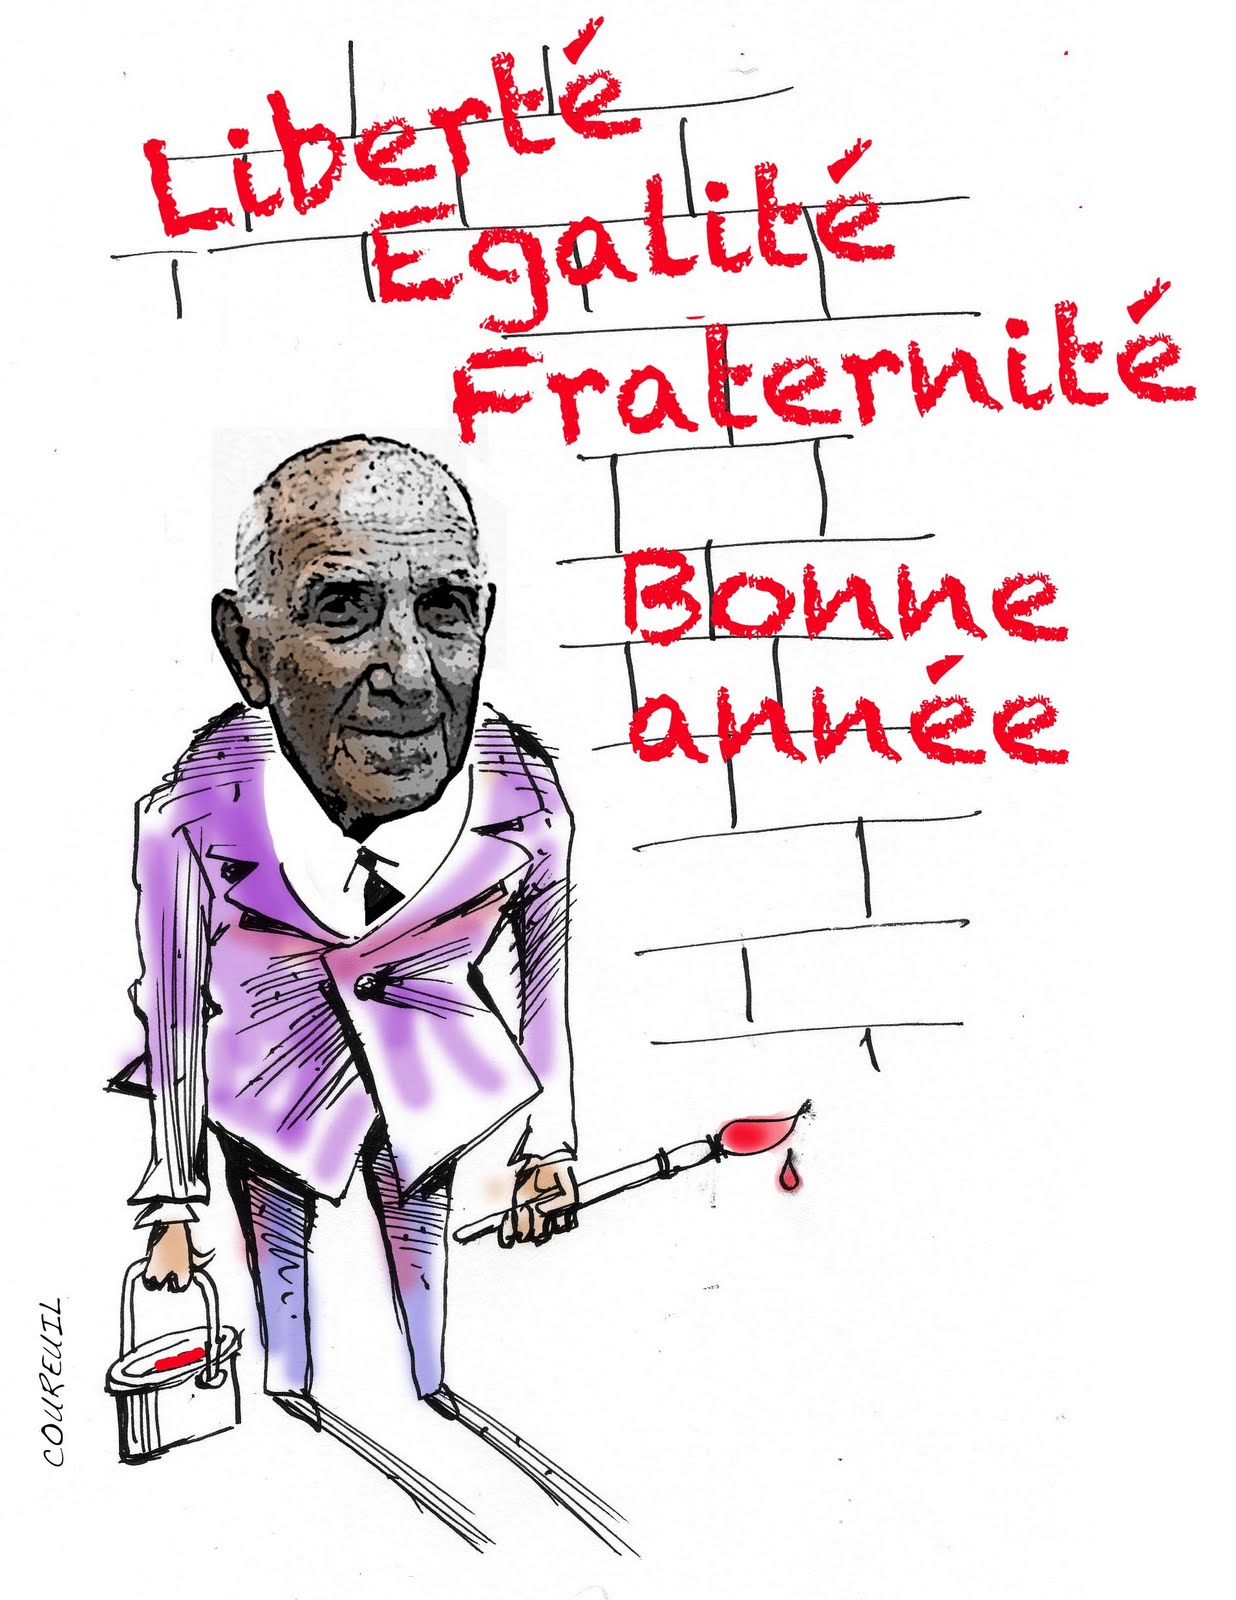 Liberté
Egalité
Fraternité
Bonne
année
COUREUIL